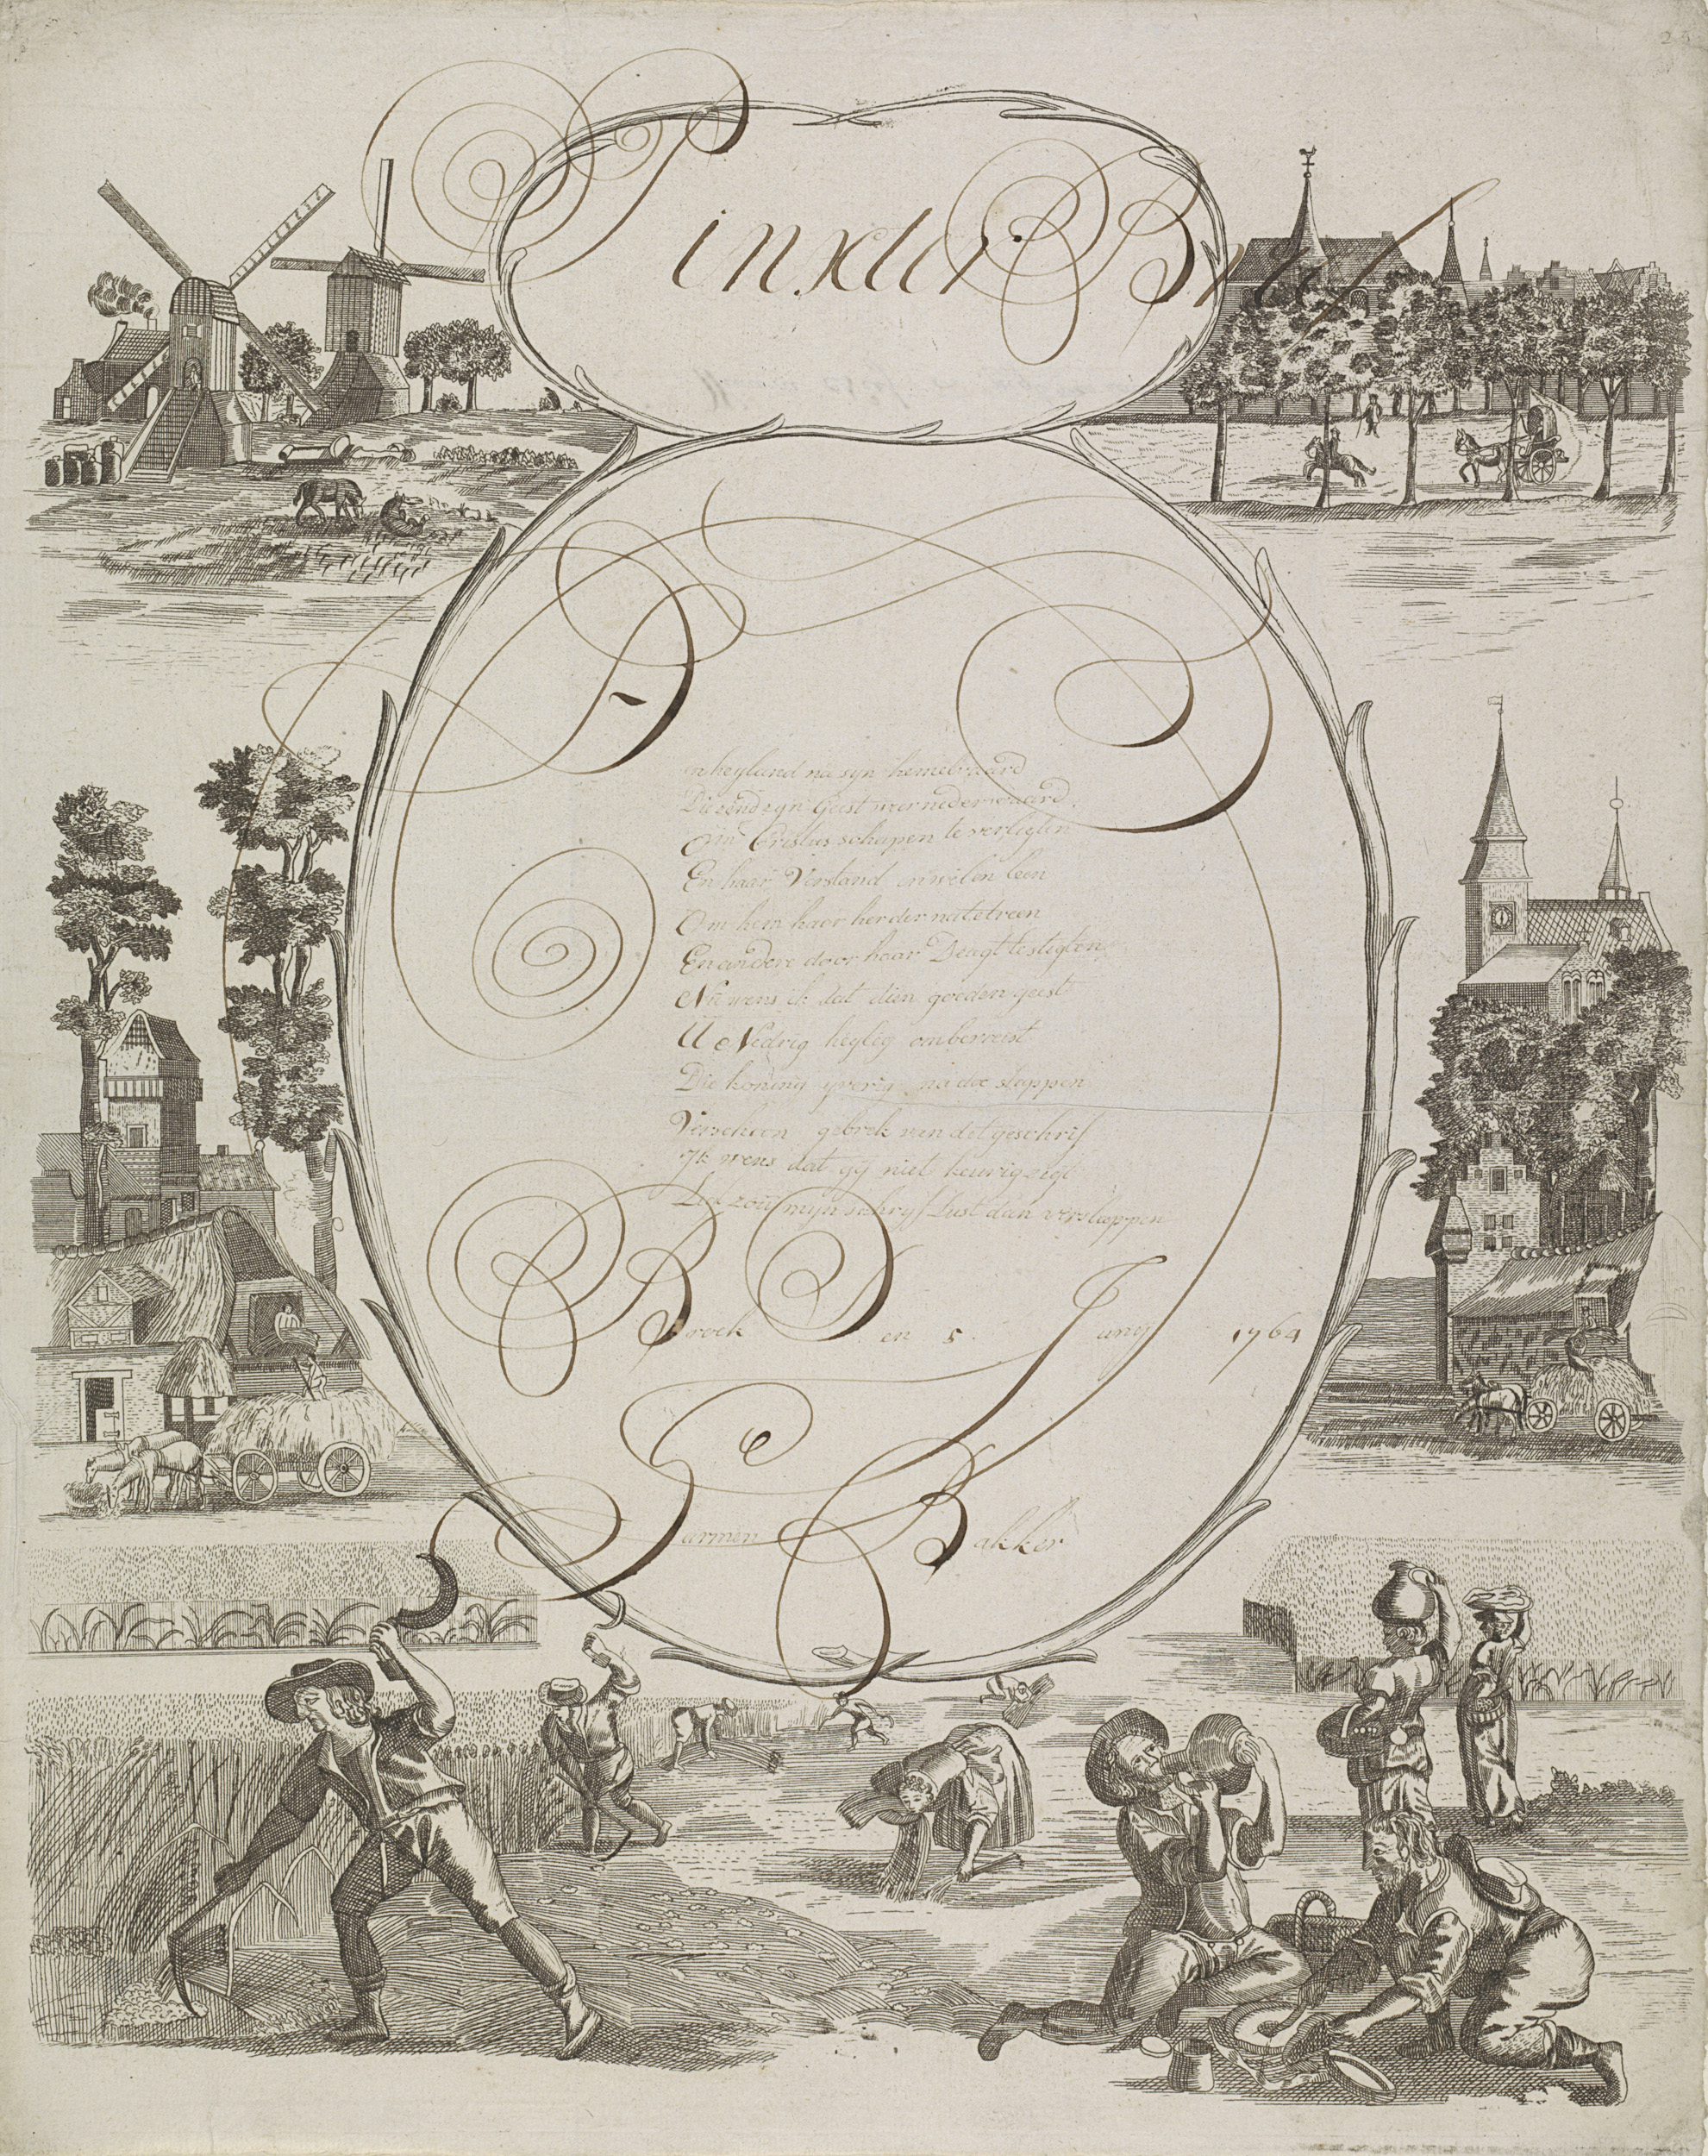 Pinxter Brief
Den heyland na syn hemelvaard
Die zend zyn Geest weer nederwaard
Om Cristus schapen te verligten
En haar Verstand
Om hem haar herder na te treen
En andere door haar Deugt te stigten
Nu wens ik dat dien goeden geest
U e Nedrig heylig
Die koning yverig na de stappen
Verschoon gebrek van dit geschrif
Ik wens dat gy niet keurig zegt
zou myn schryf Lust dan verslappen
Broek Den 5 Juny 1764
Garmen Bakker